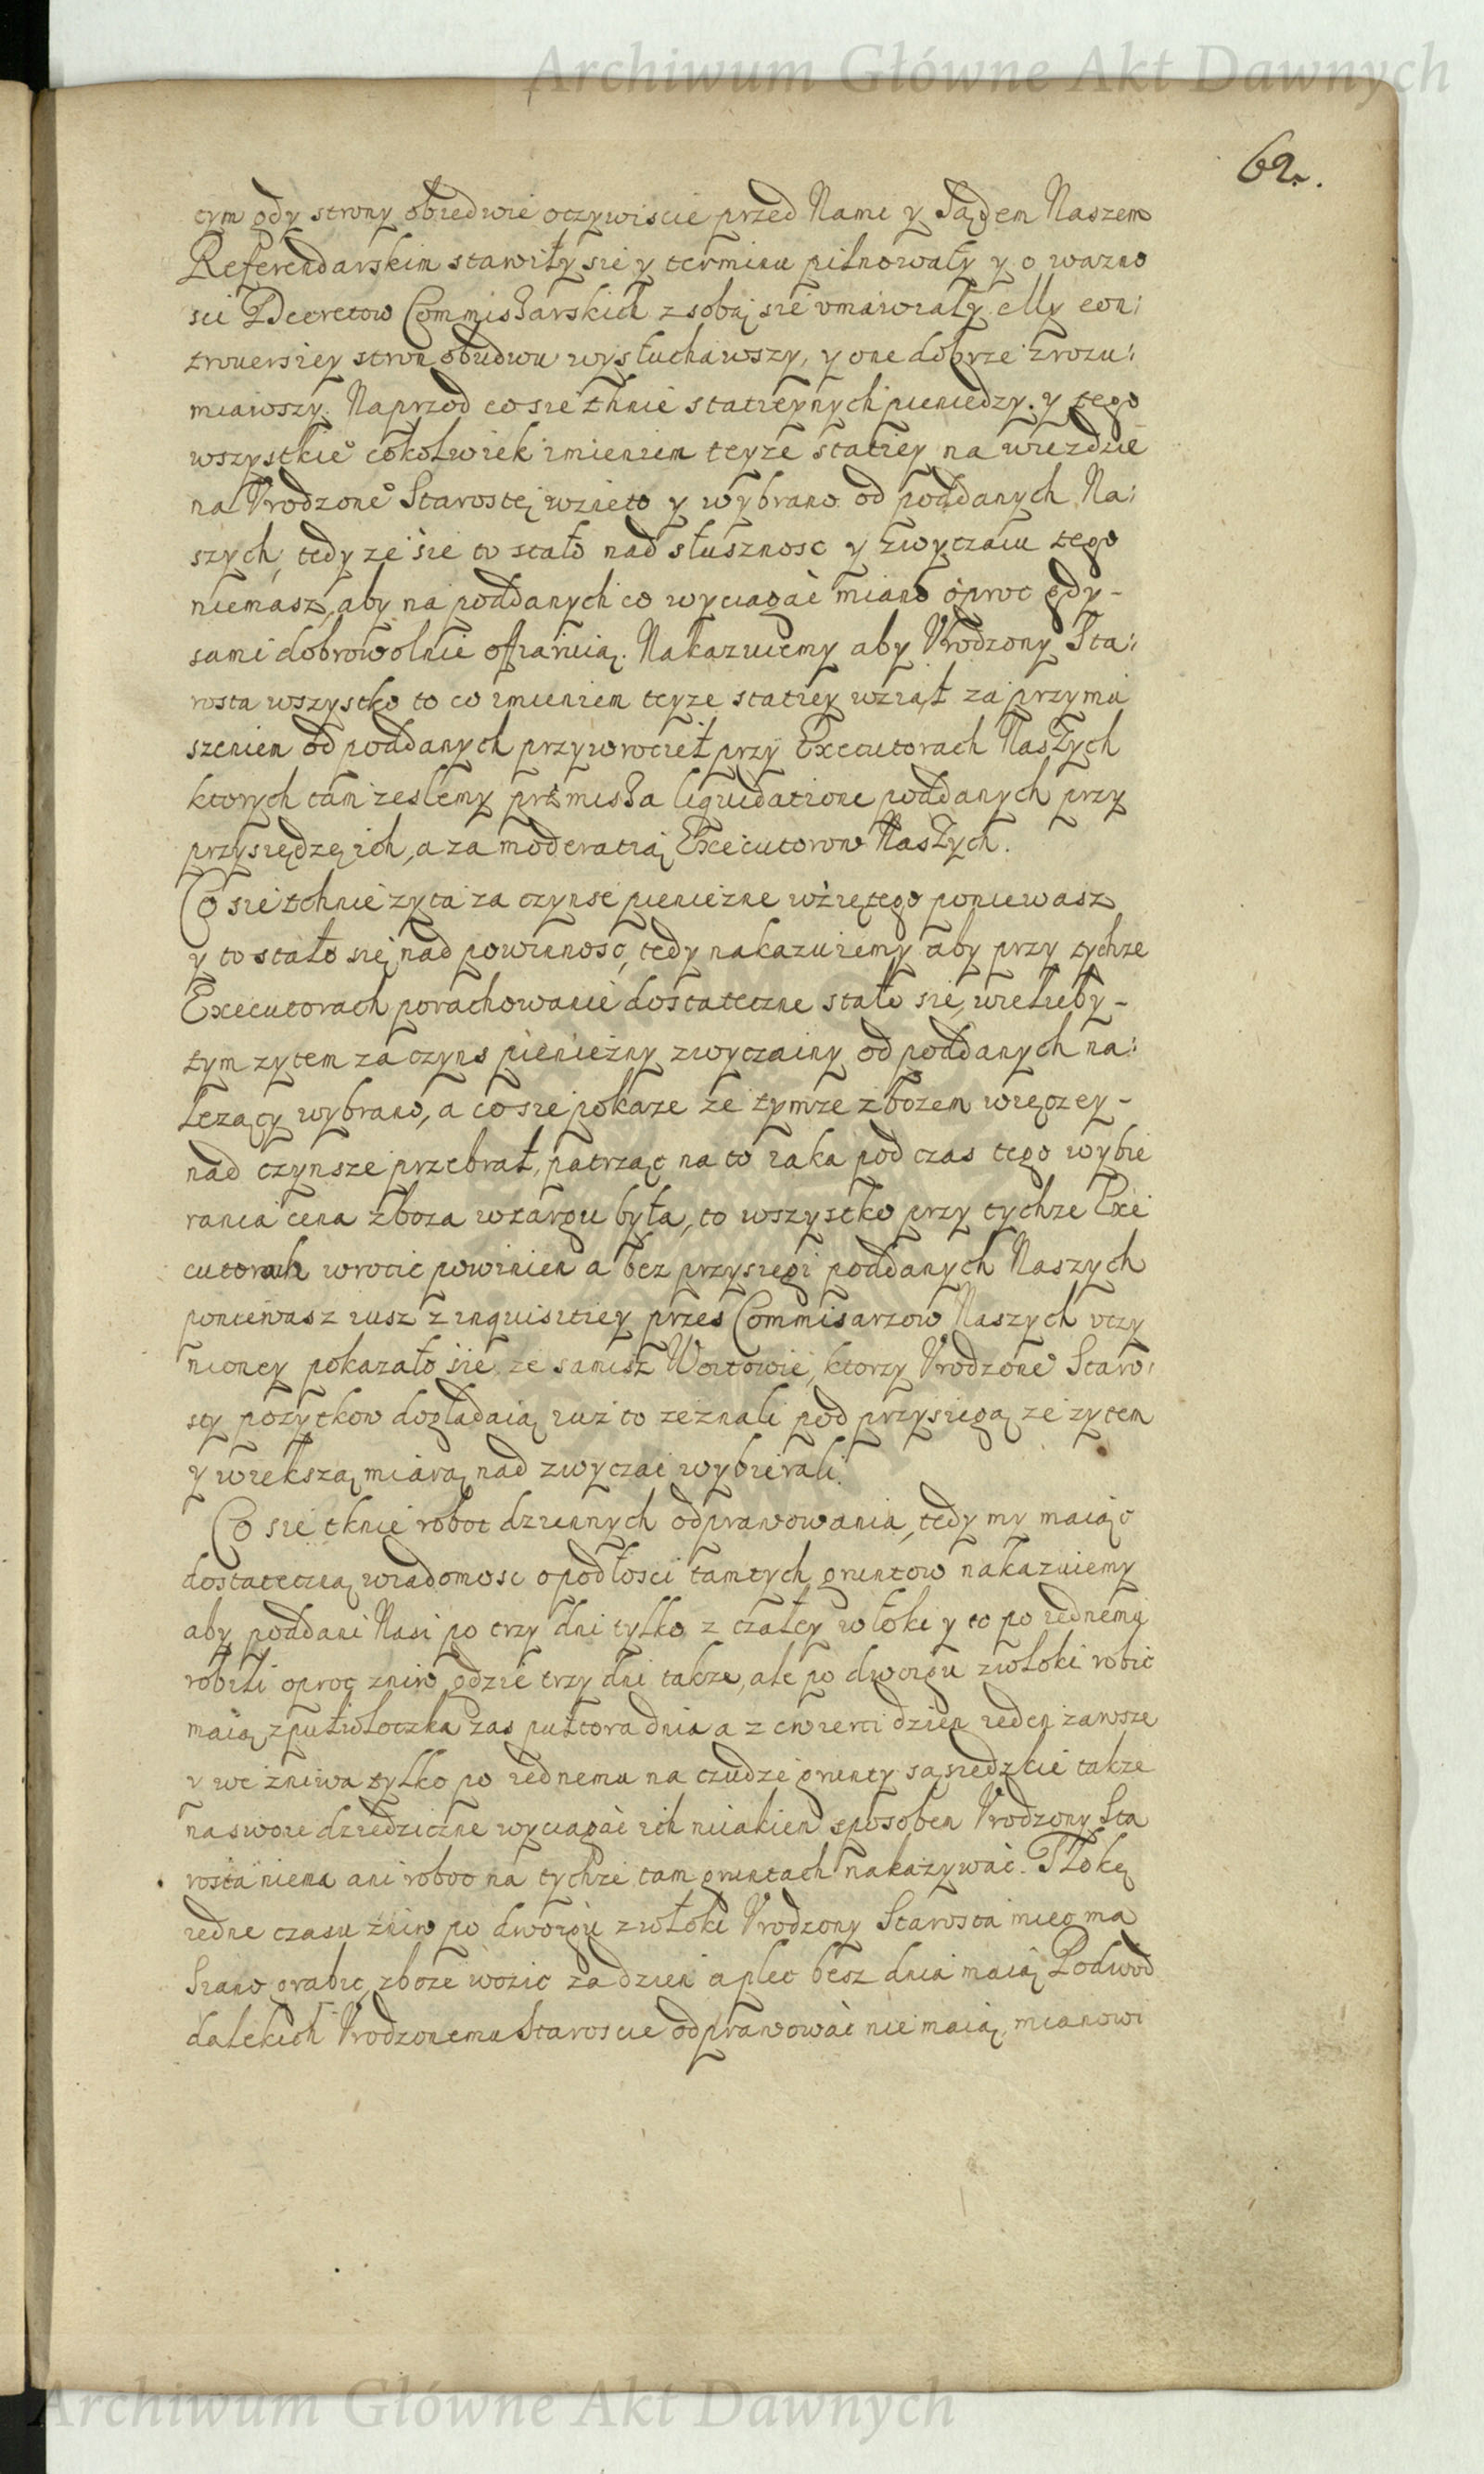 Archiwum Główne Akt Dawnych
62.
tym gdy strony obiedwie oczywiscie przed Nami y Sądem Naszem
Referendarskim stawiły sie y terminu pilnowały y o wazno
sci Decretow Commissarskich z sobą sie vmawiały. My con:
trouersiey stron obudwu wysłuchawszy, y one dobrze zrozu:
miawszy. Naprzod co sie thnie statieynych pieniedzy. y tego
wszystkie° cokolwiek imieniem teyze statiey na wiezdzie
na Vrodzone° Starostę wzieto y wybrano od poddanych Na:
szych, tedy ze sie to stało nad słusznosc y zwyczaiu tego
niemasz, aby na poddanych co wyciagać miano oproc gdy -
sami dobrowolnie offiaruią. Nakazuiemy aby Vrodzony Sta:
rosta wszystko to co imieniem teyze statiey wziął za przymu
szeniem od poddanych przywrocieł przy Executorach Naszych
ktorych tam zeslemy præmissa liquidatione poddanych przy
przysiędzę ich, a za moderatią Executorow Naszych.
Co sie tchnie zyta za czynse pieniezne wziętego poniewasz
y to stało się nad powinnosc, tedy nakazuiemy aby przy tychze
Executorach porachowanie dostateczne stało sie, wieluby -
tym zytem za czyns pieniezny zwyczainy od poddanych na:
lezący wybrano, a co sie pokaze ze tymze zbozem więczey -
nad czynsze przebrał, patrząc na to iaka pod czas tego wybie
rania cena zboza w targu była, to wszystko przy tychze Exe
cutorach wrocic powinien a bez przysiegi poddanych Naszych
poniewasz iusz z inquisitiey przes Commisarzow Naszych vczy
nioney pokazało sie ze samisz Woitowie, ktorzy Vrodzone° Staro:
sty pozytkow dogladaią iuz to zeznali pod przysiegą ze zytem
y wiekszą miarą nad zwyczai wybierali.
Co sie tknie robot dziennych odprawowania, tedy my maiąc
dostateczną wiadomosc o podłosci tamtych gruntow nakazuiemy
aby poddani Nasi po trzy dni tylko z czałey włoki y to po iednemu
robili oproc zniw gdzie trzy dni takze, ale po dwoigu z włoki robic
maią, z pułwłoczka zas pułtora dnia a z cwierci dzien ieden zawsze
y we zniwa tylko po iednemu na czudze grunty sąsiedzkie takze
na swoie dziedziczne wyciagać ich niiakiem sposobem Vrodzony Sta
rosta niema ani robot na tychze tam gruntach nakazywać. Tłokę
iedne czasu zniw po dwoigu z włoki Vrodzony Starosta miec ma
Siano grabic, zboze wozic za dzien a plec besz dnia maią Podwod
dalekich Vrodzonemu Staroscie odprawować nie maią, mianowi
Archiwum Główne Akt Dawnych